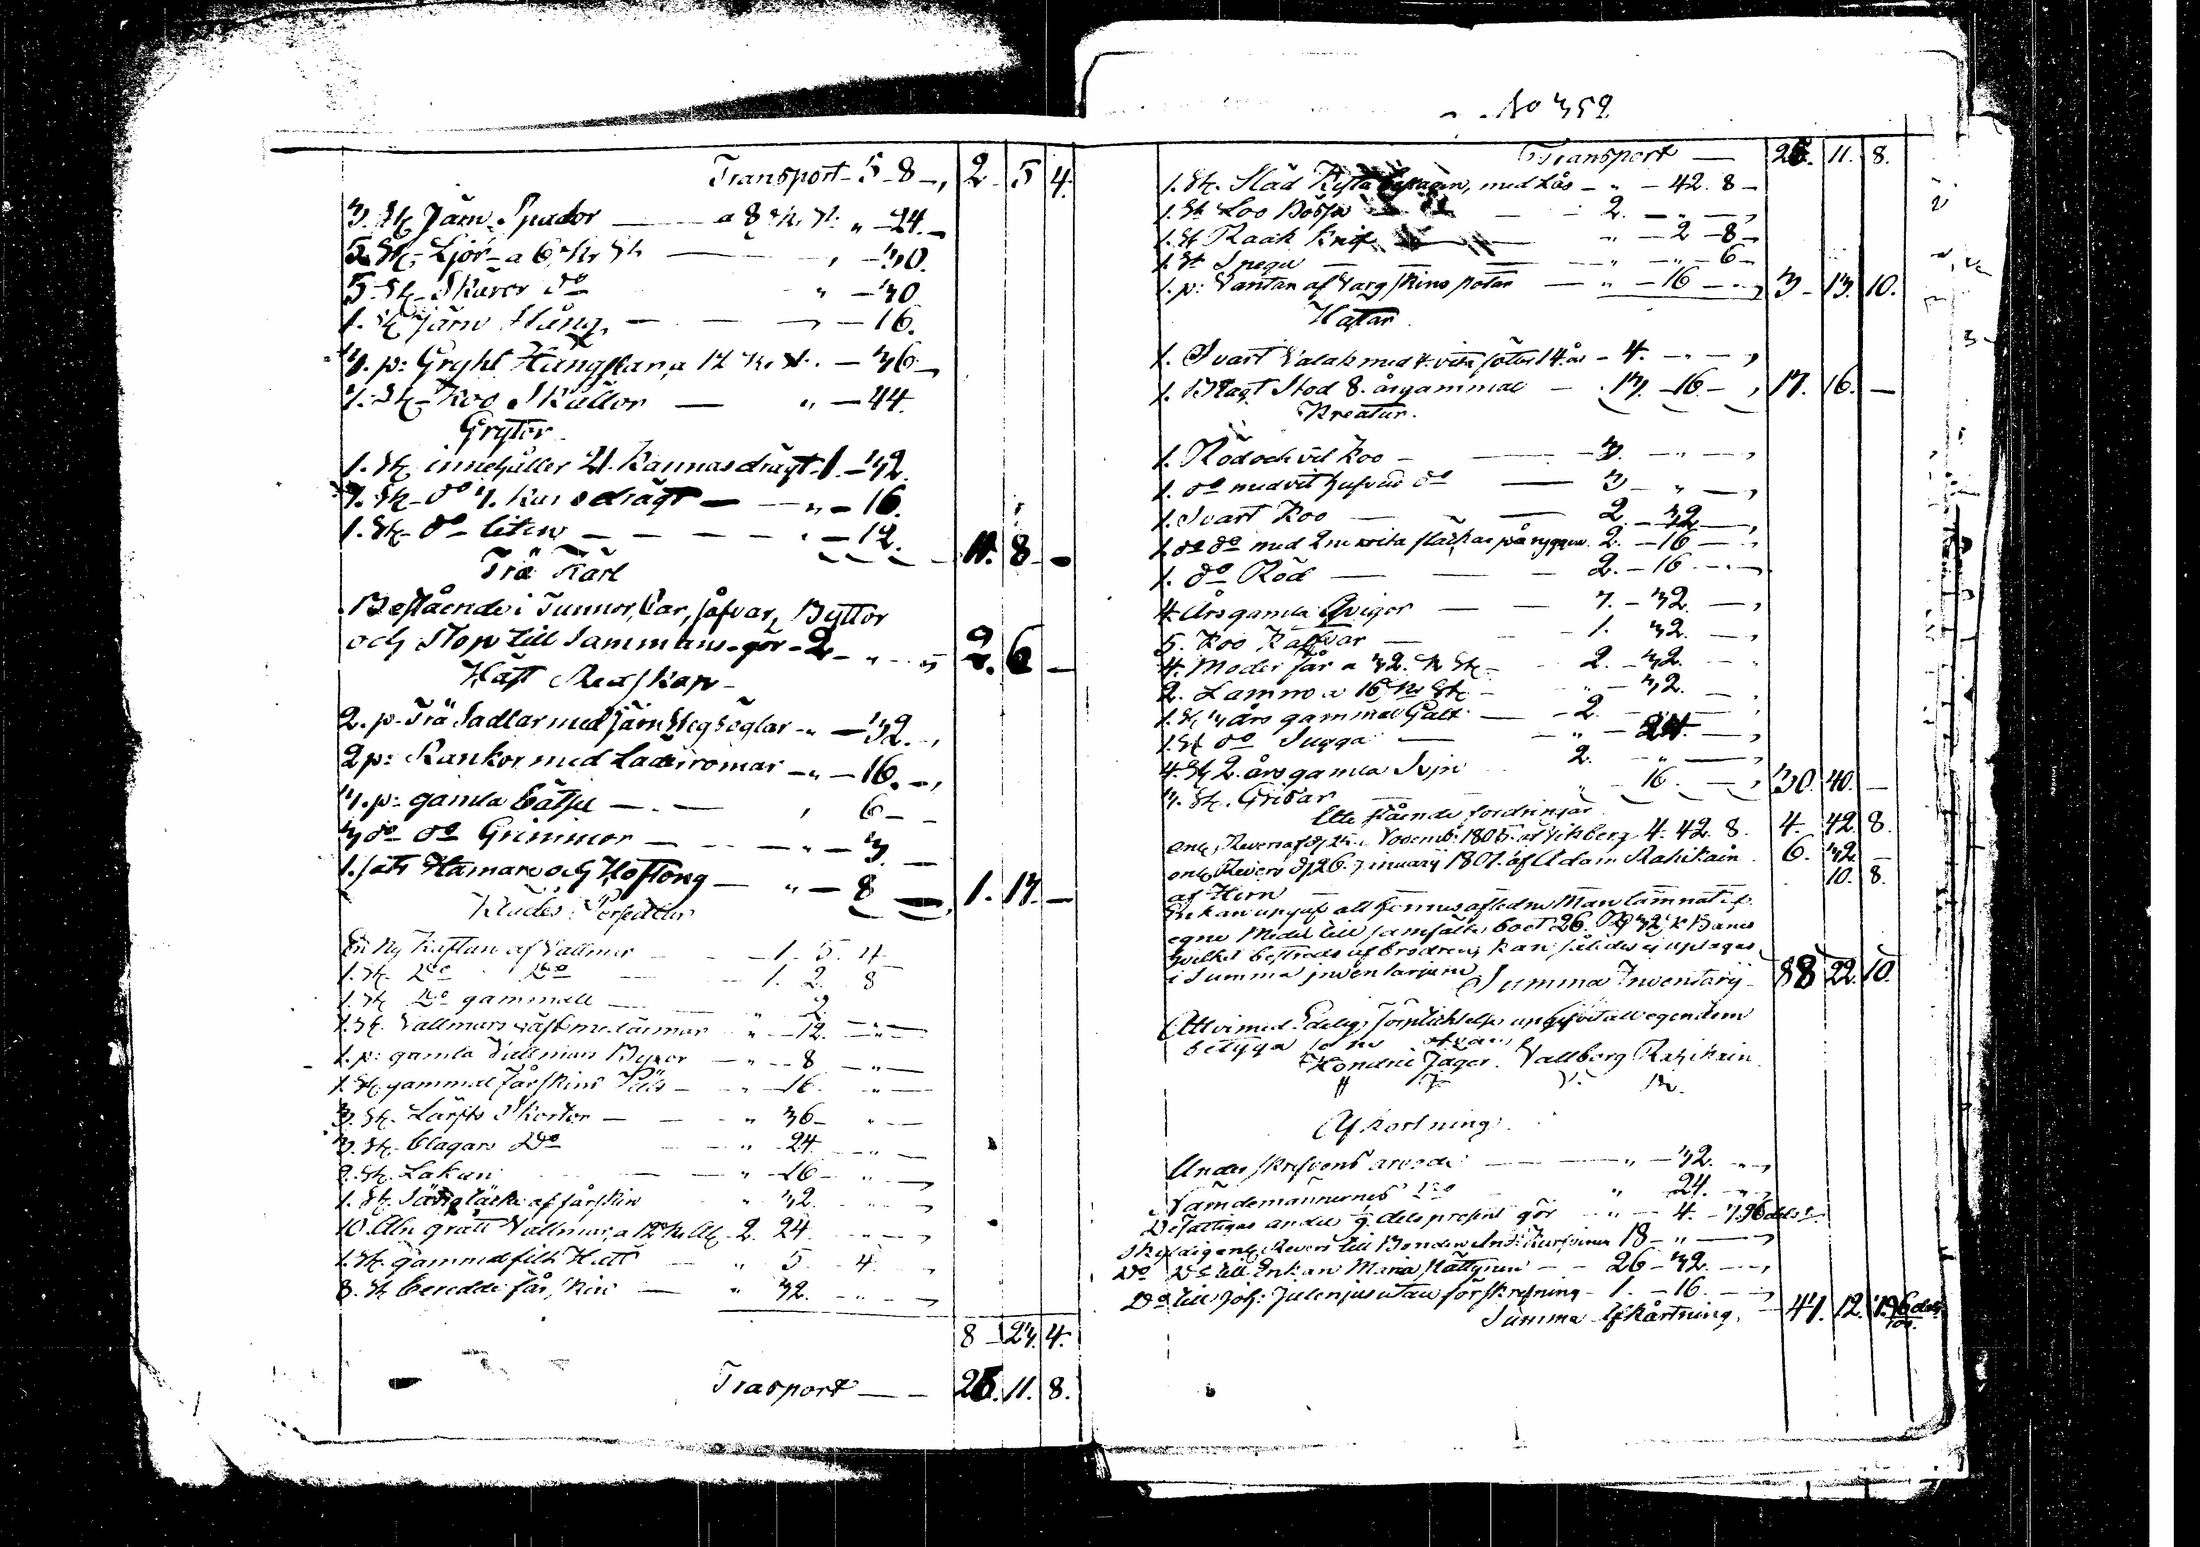 Transport - 5 - 8 - 2 5 4.
3. St. Järn Spador — a 8 " — 24.
5. St. Ljör - a 6 — " — 30.
5 St. Skäror do " — 30
1. St. Järn Stång, — — — 16.
3. p: Gryht Hängslar, a 12 — 36
St. Koo Skällor — " — 44.
Grytor
1. St. innehåller 21. Kannas drägt - 1. — 32.
1. St. do 7. Kan s drägt — — " — 16.
1. St. do liten — — — — 12. 11. 8 —
Trä Kärl
Bestående i Tunnor, Car, såfvar, Byttor
och Stop till Sammans - gör - 2 — " 2. 6 —
Häst Redskap
2. p. Trä Sadlar med Järn Stegböglar " — 32.
2 p: Rankor med Laderromar — " — 16.
p: gamla — 6 —
3 do do Grimmor — — " — 3. —
1. Hamare och Hoftong — " — 8 — 1. 17. —
Klädes Persedlar
En Ny Kaftan af Vallmar — 1. 5. 4
1. St. Do Do — 1. 2. 8
1. St. Do gammall — " 2
1. St. Vallmars väst med ärmar " — 12.
1. p: gamla Vallmars Byxor — " — 8 — "
1. St. gammal fårskins Päls — " — 16. "
3. St. Lärfts Skortor — " 36 — "
3. St. blagars Do " 24
2. St. Lakan — " — 16 — "
1. St. Sängtäcke af fårskin " 32.
10. Aln grått Vallmar, a 12 2. 24.
1. St. gammal filt Hatt " 5 4.
8. St beredde får skin — " 32.
8 — 23. 4.
Trasport — — 25. 11. 8.
No 352
Transport — 25. 11. 8.
1. St. Släd Kista med Lås — " — 42. 8 —
1. St Loo Bössa — 2. — " —
1. St Raak Knif — " — 2 — 8 —
1. St Spegel — " — " — 6 —
1. p: Vantar af Varg skins potar — " — 16 — 3 — 13. 10.
Hästar
1. Svart Valak med 4. vita fötter 14. år — 4. — " —
1. Blagt Stod 8. årgammal — 13. — 16 — 17. 16. —
Kreatur.
1. Röd och vit Koo — 3. — " —
1. do med vit hufvud do — 3 — " —
1. Svart Koo — 2. — 32 —
1. do do med 2ne hvita fläckar på ryggen. 2. — 16 —
1. do Röd — 2. — 16
4. Års gamla Qvigor — 7. — 32. —
5. Koo Kalfvar — 1. 32. —
4. Moder får a 32. St. — 2. — 32.
2. Lamm a 16 St. — " — 32.
1. St 3 års gammal Galt — 2. — " —
1. St do Sugga — " — 24. —
4. St 2. års gamla Svin 2. — " —
3. St. Grisar — 16. — 30. 40. —
Ute stående fordringar
enl. Revers af d. Novemb. 1805. af Vikberg 4. 42. 8. 4. 42 8.
enl. Revers d. 26. January 1807. af Adam Rahikain 6. 32 —
af Hern — 10. 8.
egne Medel till samfälte boet 26. 32.
hvilket bestrids af brodren, kan således ej uptagas
i Summa inventarium Summa Inventarij 88 22. 10.
Att vi med Edelig förplichtelse upgifvit all egendom
betyga
Hendric Jäger. Vallborg Rahikain.
H J V. R.
Afkortning.
Under skrifvens arvode — " — 32.
Nämdemännernes Do " 24.
De fattigas andel dels procent gör " — 4. —
Skyldig enl. Revers till Bonden And: Kurvinen 18 — " —
Do Do till Enkan Maria Hättynen — 26 — 32. —
Do till Joh: Julenius utan förskrifning — 1. — 16. —
Summa Afkårtning. — 47. 12.